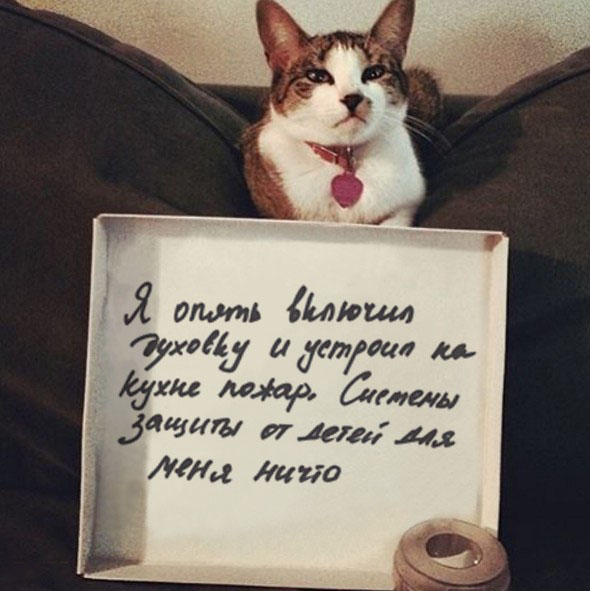 Я опять включил
духовку и устроил на
кухне пожар. Системы
защиты от детей для
меня ничто